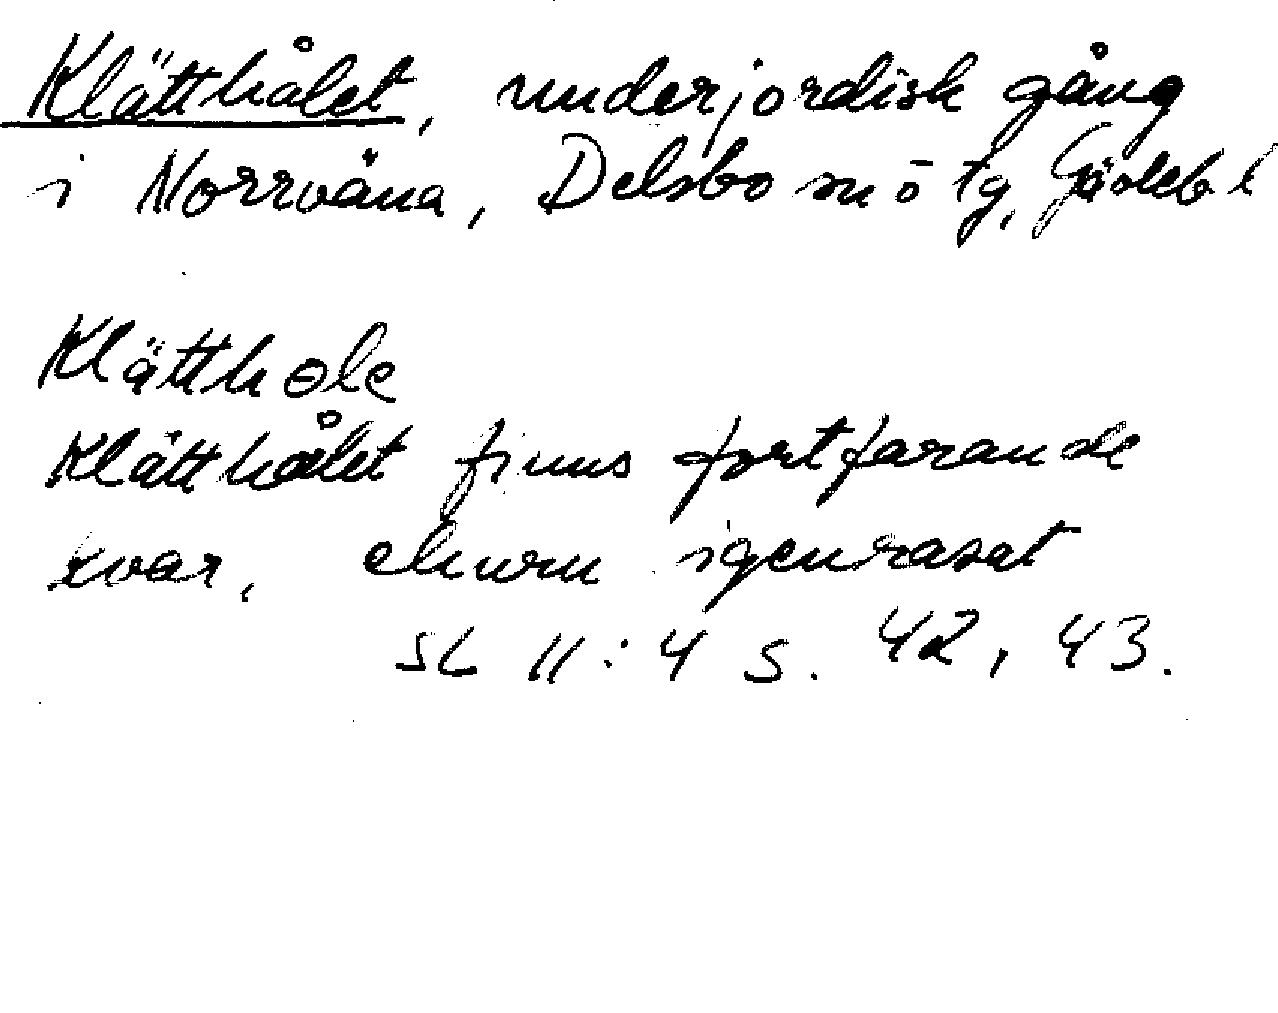 Klätthålet, underjordisk gång
i Norrvåna, Delsbo sn o tg, Gävleb l
Klätthole
Klätthålet finns fortfarande
kvar, ehuru igenrasat
SL 11:4 s. 42, 43.